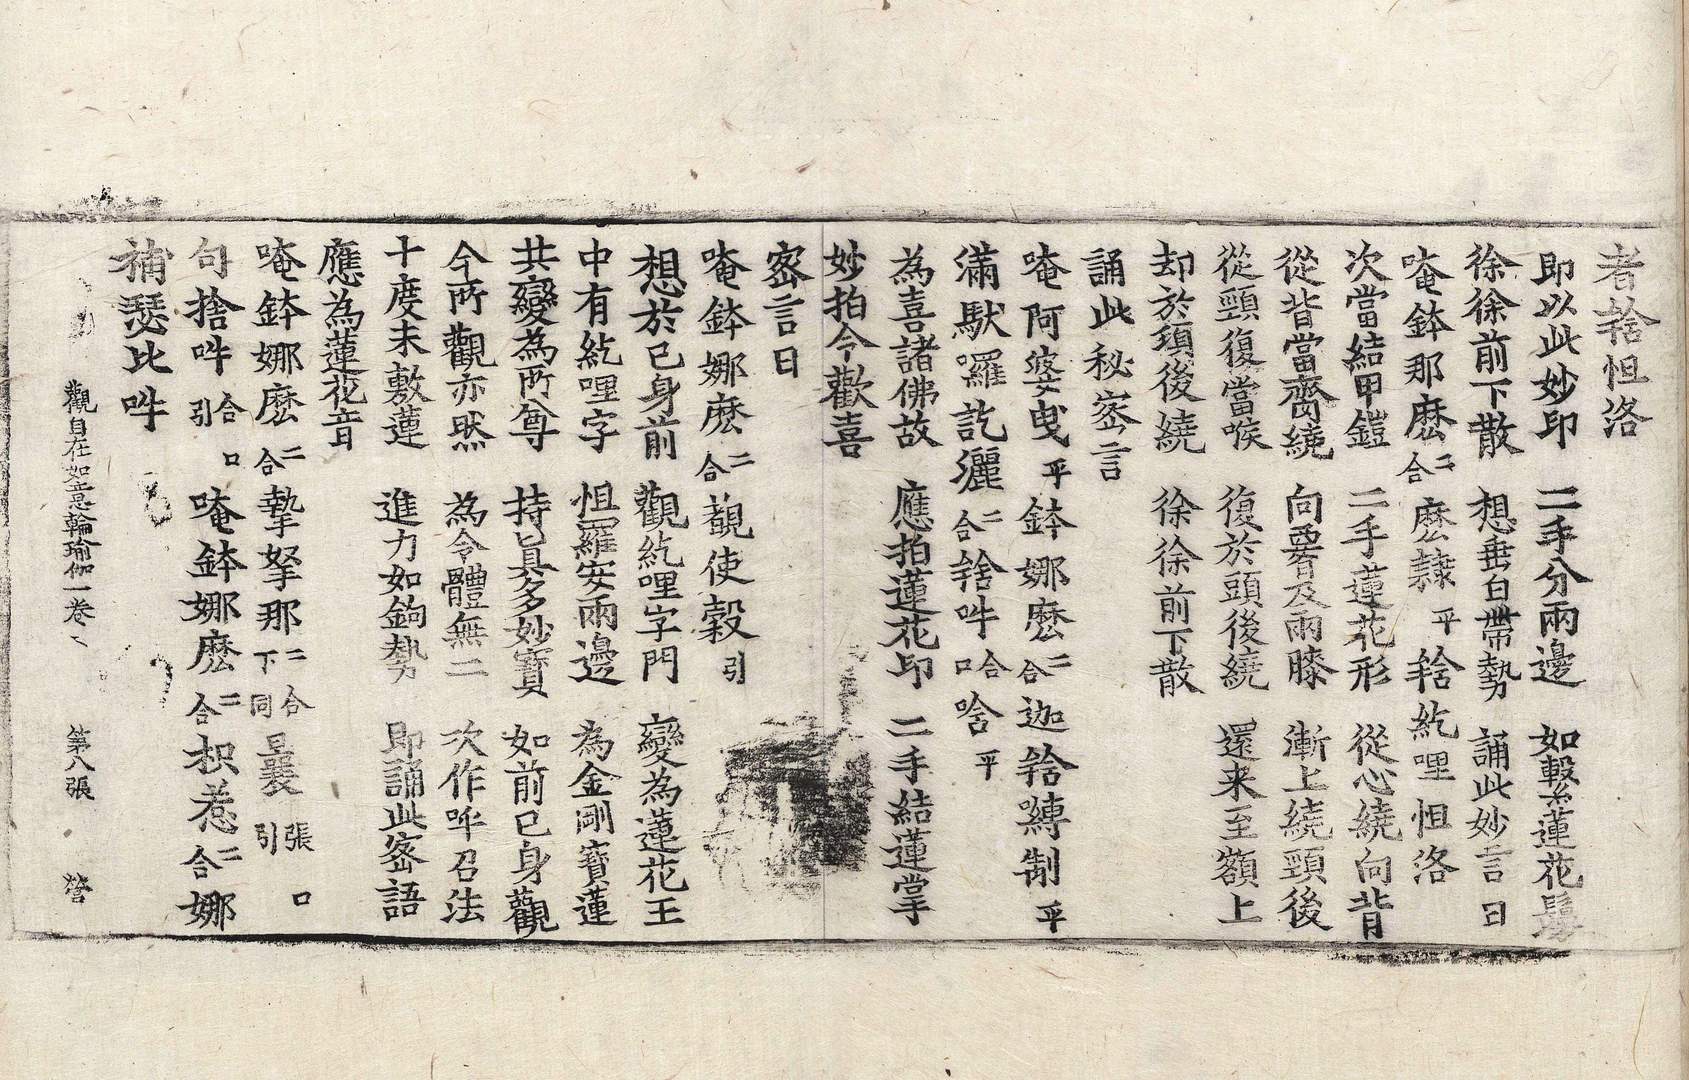 者捨怛洛
即以此妙印　二手分兩邊　如繫蓮花鬘
徐徐前下散　想垂白帶勢　誦此妙言曰
唵鉢那麽二合麽隸平捨紇哩怛洛
次當結甲鎧　二手蓮花形　從心繞向背
從背當齊繞　向署及兩膝　漸上繞頸後
從頸復當喉　復於頭後繞　還来至額上
却於頭後繞　徐徐前下散
誦此秘密言
唵阿婆曳平鉢娜麽二合迦捨嚩制平
滿馱囉訖灑二合捨吽合口唅平
為喜諸佛故　應拍蓮花印　二手結蓮掌
妙拍令歡喜
密言曰
唵鉢娜麽二合覩使穀引
想於己身前　觀紇哩字門　變為蓮花王
中有紇哩字　怛羅安兩邊　為金剛寶蓮
共變為所尊　持真多妙寶　如前己身觀
今所觀亦然　為令體無二　次作呼召法
十度未敷蓮　進力如鉤勢　即誦此密語
應為蓮花音
唵鉢娜麽二合摯拏那二合下同曩張口引
句捨吽合口引唵鉢娜麽二合枳惹二合娜
補瑟比吽
觀自在如意輪瑜伽一卷　第八張